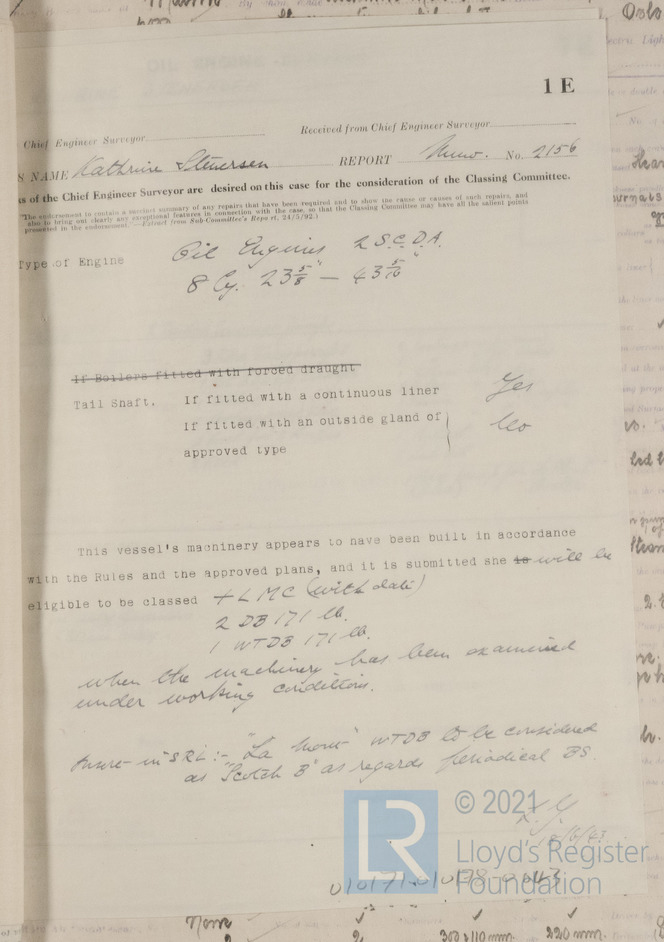 1 E
Chief Engineer Surveyor
Received from Chief Engineer Surveyor
S NAME Kathrine REPORT No. 2156
s of the Chief Engineer Surveyor are desired on this case for the consideration of the Classing Committee.
"The endorsement to contain a succinct summary of any repairs that have been required and to show the cause or causes of such repairs, and
also to bring out clearly any exceptional features in connection with the case, so that the Classing Committee may have all the salient points
presented in the endorsement."—Extract from Sub-Committee's Report, 24/5/92.)
Type of Engine Oil Engines 2 S.C.D.A.
8 Cy. 23 5/8" — 43 5/16"
If Boilers fitted with forced draught
Tail Shaft. If fitted with a continuous liner Yes
If fitted with an outside gland of No
approved type
This vessel's machinery appears to have been built in accordance
with the Rules and the approved plans, and it is submitted she is will be
eligible to be classed + LMC (with date)
2 DB 171 lb.
1 WTDB 171 lb.
when the machinery has been examined
under working conditions.
in SRL:- "La Mont" WTDB to be considered
as "Scotch B" as regards periodical BS.
© 2021
LR
Lloyd's Register
Foundation
010171-010178-0043